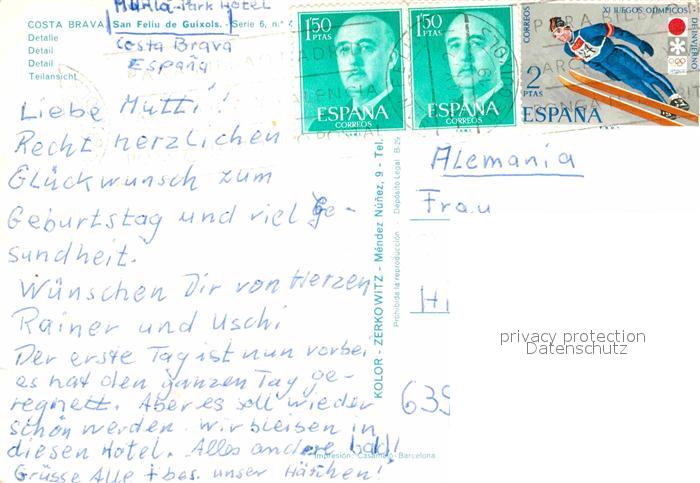 Park Hotel
COSTA BRAVA San Feliu de Guixols. - Serie 6, n.º
Detalle
Detail
Detail
Teilansicht
Costa Brava
España
Liebe Mutti!
Recht herzlichen
Glückwunsch zum
Geburtstag und viel Ge-
sundheit.
Wünschen Dir von Herzen
Rainer und Uschi
Der erste Tag ist nun vorbei
es hat den ganzen Tag ge-
regnett. Aber es soll wieder
schön werden. Wir bleiben in
diesen Hotel. Alles andere bald!
Grüsse Alle + bes. unser Häschen!
KOLOR - ZERKOWITZ - Méndez Núñez, 9 - Tel.
Prohibida la reproducción - Depósito Legal B-29
Impresión: Casamajó - Barcelona
1'50
PTAS
ESPAÑA
CORREOS
1'50
PTAS
ESPAÑA
CORREOS
CORREOS
XI JUEGOS OLIMPICOS
DE INVIERNO
24
2
PTAS
ESPAÑA
Alemania
Frau
H
635
privacy protection
Datenschutz